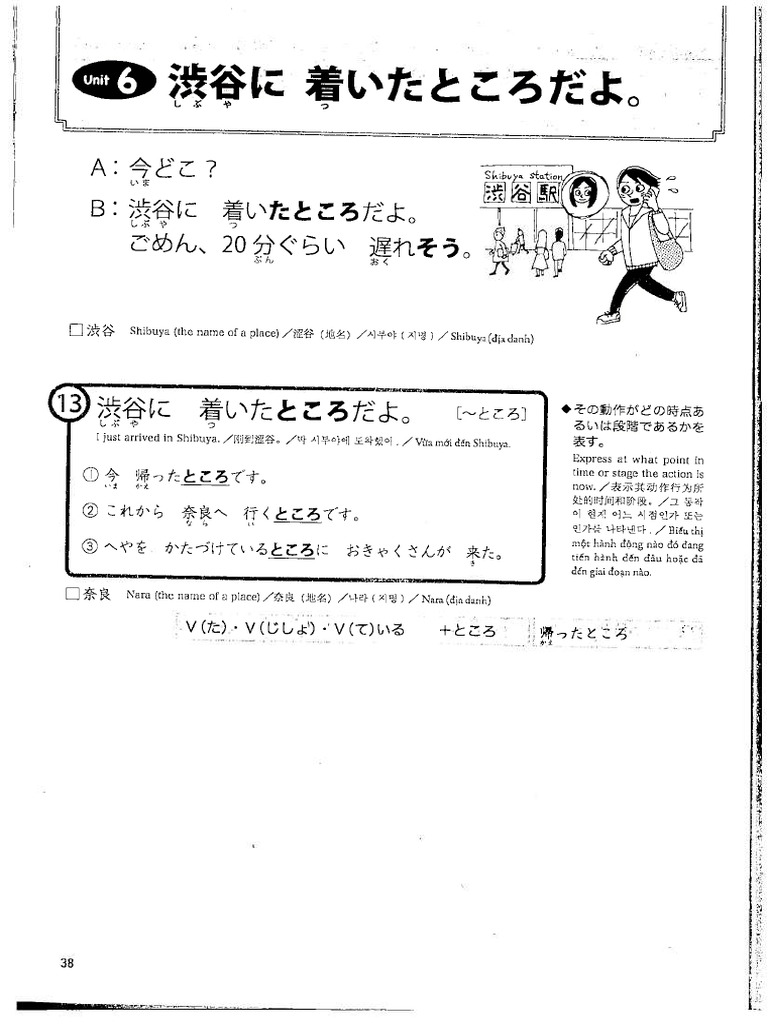 Unit 6 渋谷に 着いたところだよ。
しぶや つ
A：今どこ？
いま
B：渋谷に 着いたところだよ。
しぶや つ
ごめん、20分ぐらい 遅れそう。
ぶん おく
Shibuya station
渋谷駅
□渋谷 Shibuya (the name of a place)／涩谷（地名）／시부야 ( 지명 )／Shibuya (địa danh)
13 渋谷に 着いたところだよ。 [～ところ]
しぶや つ
I just arrived in Shibuya.／刚到涩谷。／막 시부야에 도착했어.／Vừa mới đến Shibuya.
① 今 帰ったところです。
いま かえ
② これから 奈良へ 行くところです。
なら い
③ へやを かたづけているところに おきゃくさんが 来た。
き
◆その動作がどの時点あ
るいは段階であるかを
表す。
Express at what point in
time or stage the action is
now.／表示其动作行为所
处的时间和阶段。／그 동작
이 현재 어느 시점인가 또는
인가를 나타낸다.／Biểu thị
một hành động nào đó đang
tiến hành đến đâu hoặc đã
đến giai đoạn nào.
□奈良 Nara (the name of a place)／奈良（地名）／나라 ( 지명 )／Nara (địa danh)
V(た)・V(じしょ)・V(て)いる +ところ 帰ったところ
かえ
38